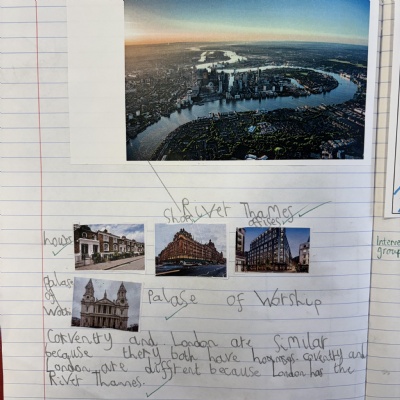 River Thames
Shops
offices
houses
Palase of Worship
Palase of Worship
Coventry and London are similar
because they both have houses. coventry and
London are different because London has the
River Thames.
Internet
group